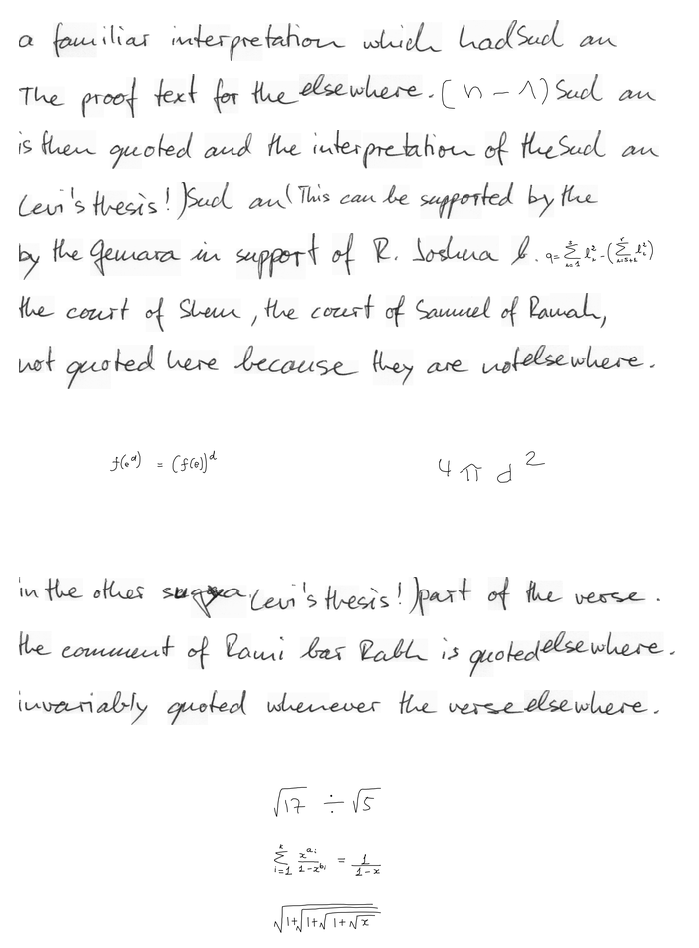 a familiar interpretation which had Sud an
The proof text for the elsewhere. (n - 1) Sud an
is then quoted and the interpretation of the Sud an
Levi's thesis!) Sud an (This can be supported by the
by the Gemara in support of R. Joshua b. q=\sum_{i=1}^{s} l_i^2-(\sum_{i=s+1}^{r} l_i^2)
the court of Shem, the court of Samuel of Ramah,
not quoted here because they are not elsewhere.
f(e^d) = (f(e))^d
4 π d^2
in the other sugya. Levi's thesis!) part of the verse.
the comment of Rami bar Rabh is quoted elsewhere.
invariably quoted whenever the verse elsewhere.
√17 ÷ √5
\sum_{i=1}^{k} \frac{x^{a_i}}{1-x^{b_i}} = \frac{1}{1-x}
√(1+√(1+√(1+√x)))